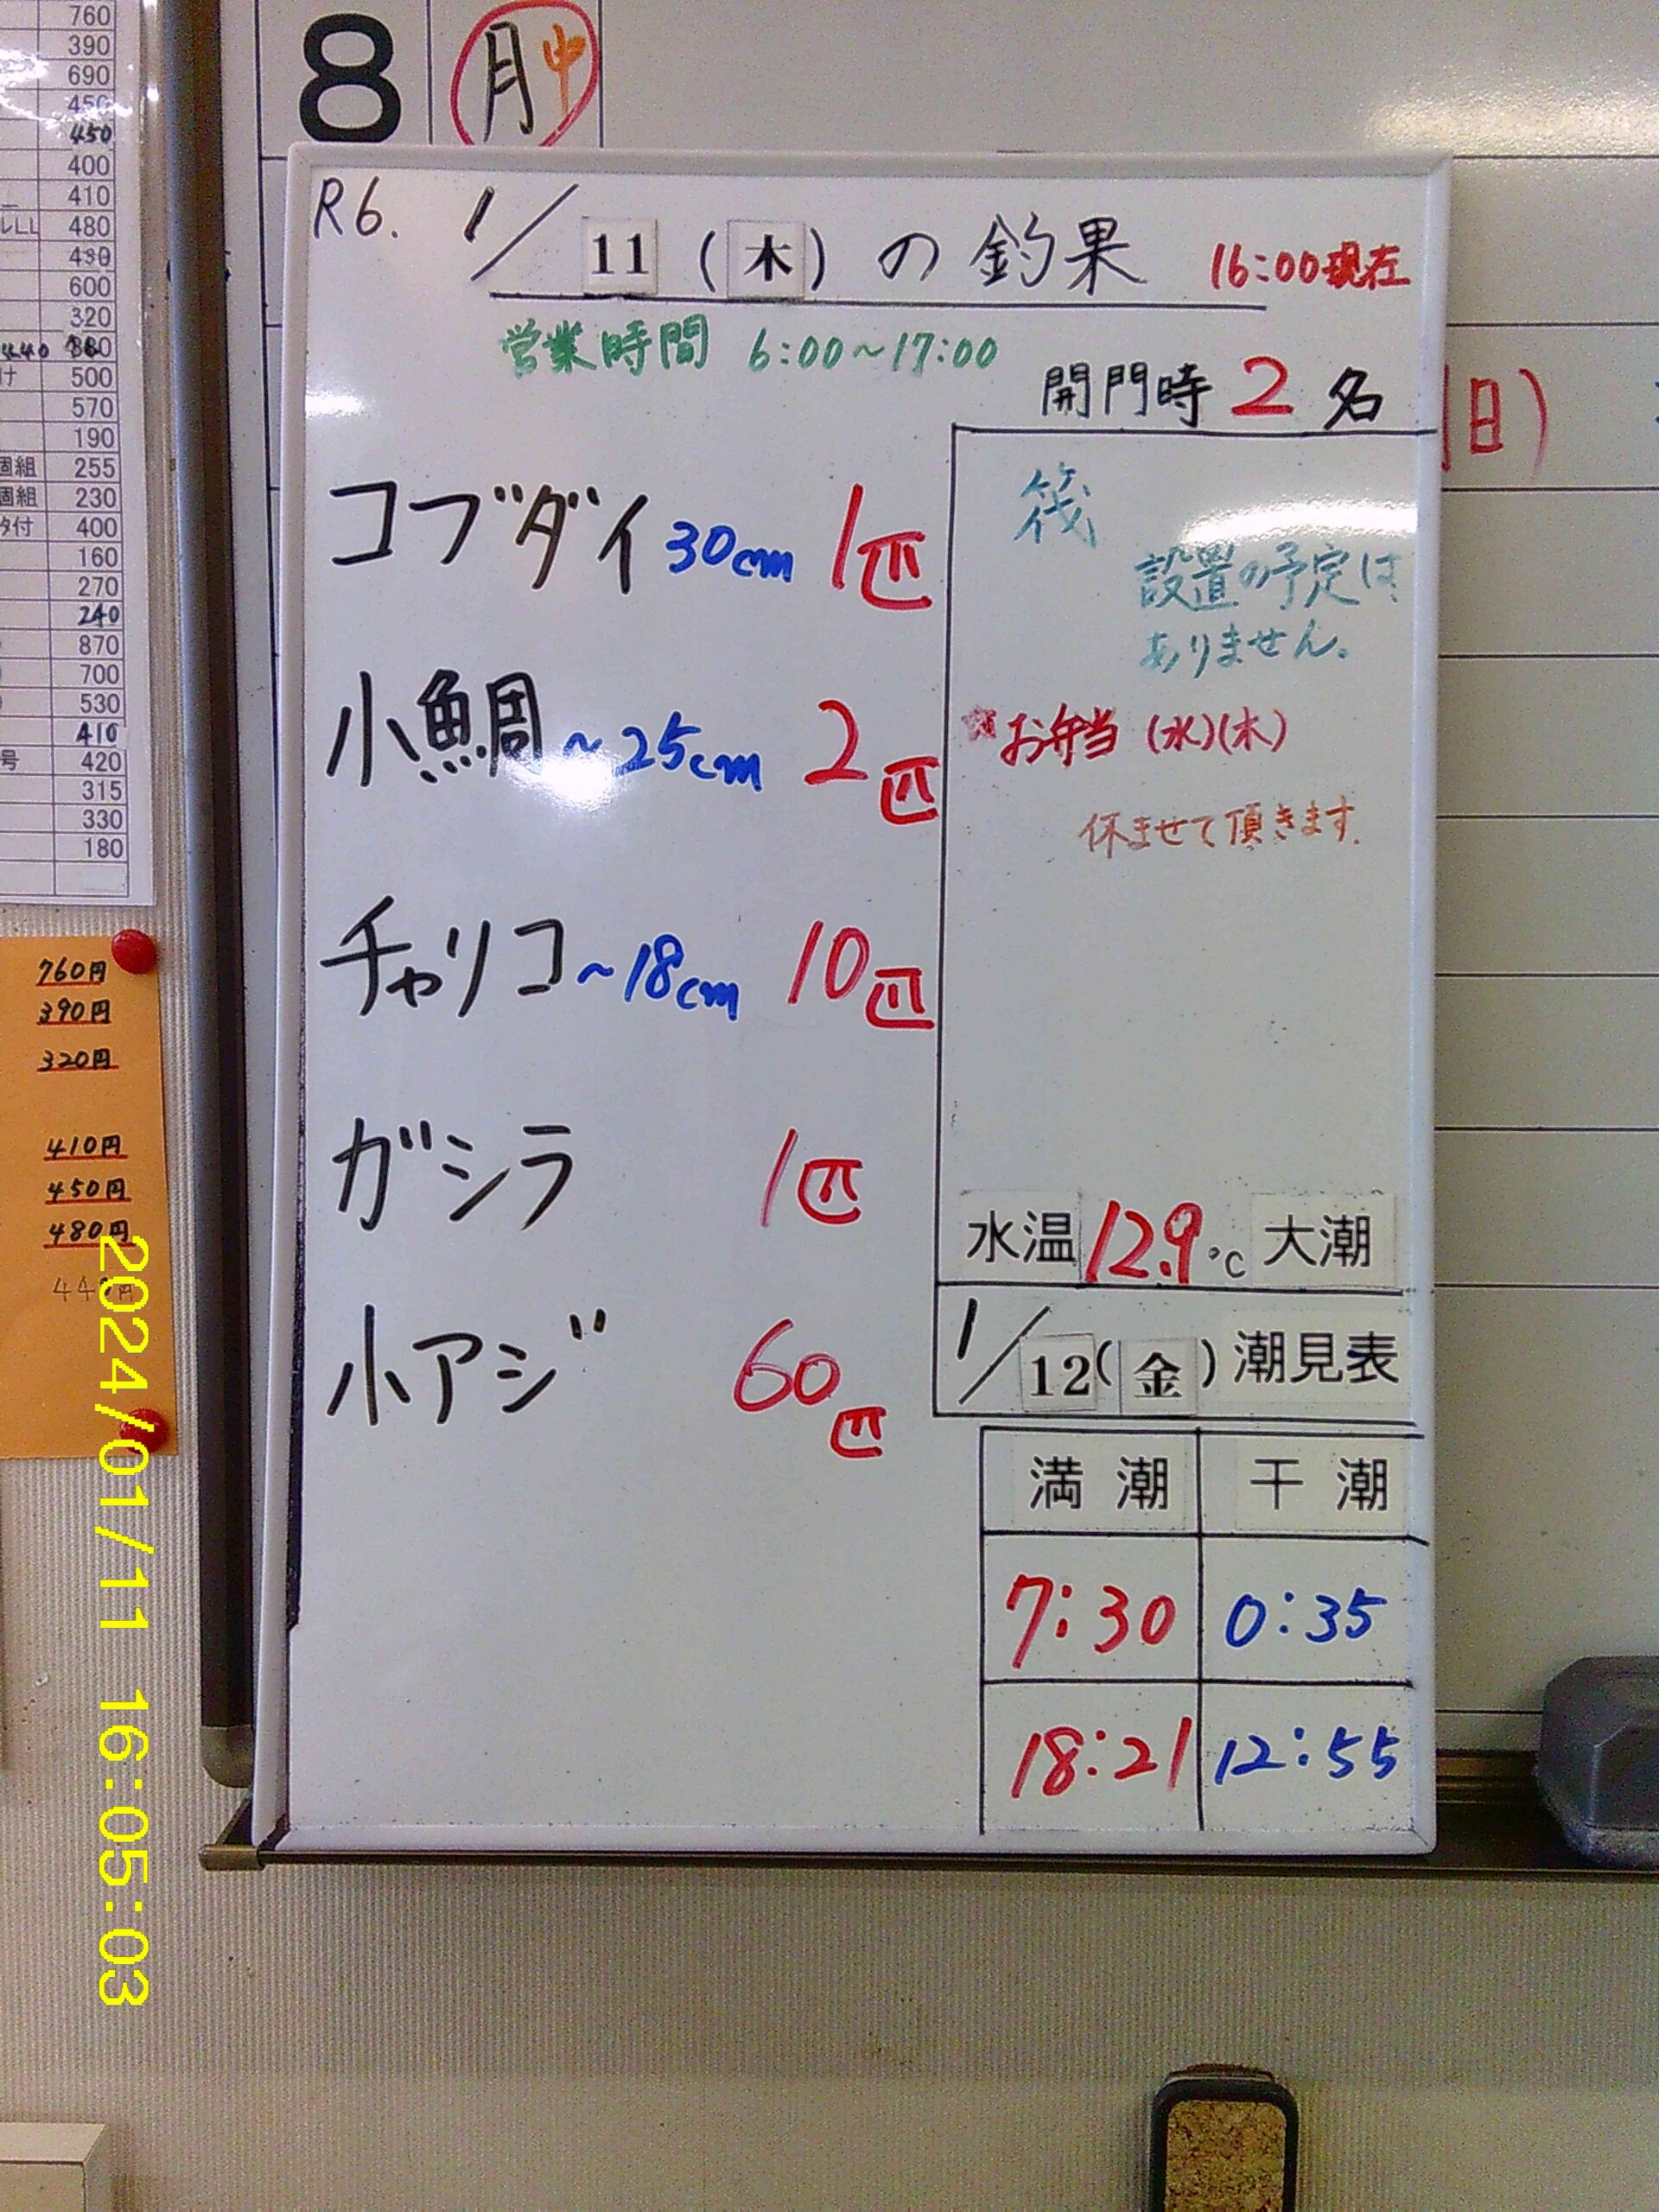 760
390
690
450
450
400
410
480
430
600
320
500
570
190
個組 255
個組 230
タ付 400
160
270
240
870
700
530
410
号 420
315
330
180
760円
390円
320円
410円
450円
480円
8 月 中
R6. 1/11(木)の釣果 16:00現在
営業時間 6:00~17:00
開門時 2名
コブダイ 30cm 1匹
小鯛 ~25cm 2匹
チャリコ ~18cm 10匹
ガシラ 1匹
小アジ 60匹
筏
設置の予定は
ありません。
☆お弁当(水)(木)
休ませて頂きます.
水温 12.9℃ 大潮
1/12(金)潮見表
満潮 干潮
7:30 0:35
18:21 12:55
(日)
2024/01/11 16:05:03